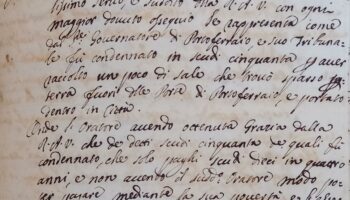 simo Servo, e suddito della R. A. V. con ogni
maggior dovuto ossequio Le rapresenta, come
dal Governatore di Portoferraio, e suo Tribuna
le fù condennato in scudi cinquanta p aver
raccolto un poco di sale che trovò sparso p
terra fuori della Porta di Portoferraio, e portato
dentro in Città.
Onde l'Oratore avendo ottenuta Grazia dalla
R. A. V. che de detti scudi cinquanta de quali fù
condennato, che solo paghi scudi dieci in quattro
anni, e non avendo il sudd. Oratore modo
pagare mediante la sua povertà